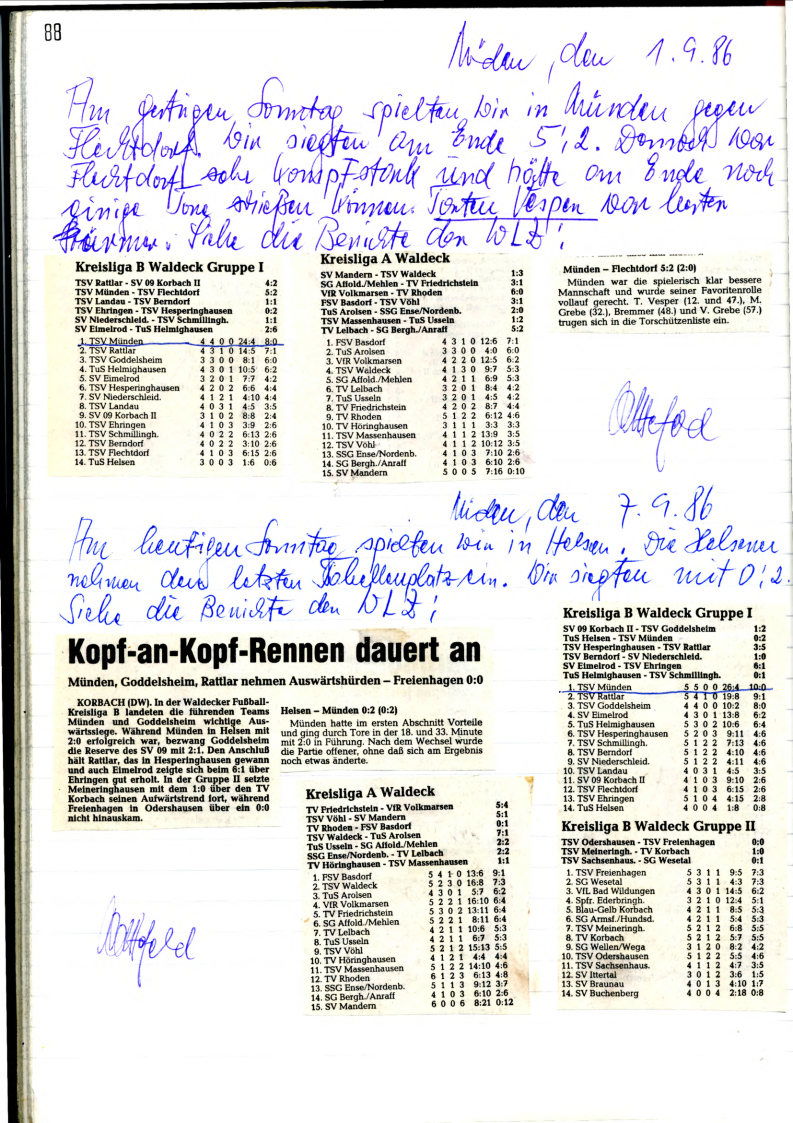 88
Münden, den 1.9.86
Am gestrigen Sonntag spielten wir in Münden gegen
Flechtdorf. Wir siegten am Ende 5:2. Danach war
Flechtdorf sehr kampfstark und hätte am Ende noch
einige Tore
können. Torsten Vesper war bester
Stürmer. Siehe die Berichte der WLZ!
Kreisliga B Waldeck Gruppe I
TSV Rattlar - SV 09 Korbach II 4:2
TSV Münden - TSV Flechtdorf 5:2
TSV Landau - TSV Berndorf 1:1
TSV Ehringen - TSV Hesperinghausen 0:2
SV Niederschleid. - TSV Schmillingh. 1:1
SV Eimelrod - TuS Helmighausen 2:6
1. TSV Münden 4 4 0 0 24:4 8:0
2. TSV Rattlar 4 3 1 0 14:5 7:1
3. TSV Goddelsheim 3 3 0 0 8:1 6:0
4. TuS Helmighausen 4 3 0 1 10:5 6:2
5. SV Eimelrod 3 2 0 1 7:7 4:2
6. TSV Hesperinghausen 4 2 0 2 6:6 4:4
7. SV Niederschleid. 4 1 2 1 4:10 4:4
8. TSV Landau 4 0 3 1 4:5 3:5
9. SV 09 Korbach II 3 1 0 2 8:8 2:4
10. TSV Ehringen 4 1 0 3 3:9 2:6
11. TSV Schmillingh. 4 0 2 2 6:13 2:6
12. TSV Berndorf 4 0 2 2 3:10 2:6
13. TSV Flechtdorf 4 1 0 3 6:15 2:6
14. TuS Helsen 3 0 0 3 1:6 0:6
Kreisliga A Waldeck
SV Mandern - TSV Waldeck 1:3
SG Affold./Mehlen - TV Friedrichstein 3:1
VfR Volkmarsen - TV Rhoden 6:0
FSV Basdorf - TSV Vöhl 3:1
TuS Arolsen - SSG Ense/Nordenb. 2:0
TSV Massenhausen - TuS Usseln 1:2
TV Lelbach - SG Bergh./Anraff 5:2
1. FSV Basdorf 4 3 1 0 12:6 7:1
2. TuS Arolsen 3 3 0 0 4:0 6:0
3. VfR Volkmarsen 4 2 2 0 12:5 6:2
4. TSV Waldeck 4 1 3 0 9:7 5:3
5. SG Affold./Mehlen 4 2 1 1 6:9 5:3
6. TV Lelbach 3 2 0 1 8:4 4:2
7. TuS Usseln 3 2 0 1 4:5 4:2
8. TV Friedrichstein 4 2 0 2 8:7 4:4
9. TV Rhoden 5 1 2 2 6:12 4:6
10. TV Höringhausen 3 1 1 1 3:3 3:3
11. TSV Massenhausen 4 1 1 2 13:9 3:5
12. TSV Vöhl 4 1 1 2 10:12 3:5
13. SSG Ense/Nordenb. 4 1 0 3 7:10 2:6
14. SG Bergh./Anraff 4 1 0 3 6:10 2:6
15. SV Mandern 5 0 0 5 7:16 0:10
Münden – Flechtdorf 5:2 (2:0)
Münden war die spielerisch klar bessere
Mannschaft und wurde seiner Favoritenrolle
vollauf gerecht. T. Vesper (12. und 47.), M.
Grebe (32.), Bremmer (48.) und V. Grebe (57.)
trugen sich in die Torschützenliste ein.
Münden, den 7.9.86
Am heutigen Sonntag spielten wir in Helsen. Die Helsener
nehmen den letzten Tabellenplatz ein. Wir siegten mit 0:2.
Siehe die Berichte der WLZ!
Kopf-an-Kopf-Rennen dauert an
Münden, Goddelsheim, Rattlar nehmen Auswärtshürden – Freienhagen 0:0
KORBACH (DW). In der Waldecker Fußball-
Kreisliga B landeten die führenden Teams
Münden und Goddelsheim wichtige Aus-
wärtssiege. Während Münden in Helsen mit
2:0 erfolgreich war, bezwang Goddelsheim
die Reserve des SV 09 mit 2:1. Den Anschluß
hält Rattlar, das in Hesperinghausen gewann
und auch Eimelrod zeigte sich beim 6:1 über
Ehringen gut erholt. In der Gruppe II setzte
Meineringhausen mit dem 1:0 über den TV
Korbach seinen Aufwärtstrend fort, während
Freienhagen in Odershausen über ein 0:0
nicht hinauskam.
Helsen – Münden 0:2 (0:2)
Münden hatte im ersten Abschnitt Vorteile
und ging durch Tore in der 18. und 33. Minute
mit 2:0 in Führung. Nach dem Wechsel wurde
die Partie offener, ohne daß sich am Ergebnis
noch etwas änderte.
Kreisliga A Waldeck
TV Friedrichstein - VfR Volkmarsen 5:4
TSV Vöhl - SV Mandern 5:1
TV Rhoden - FSV Basdorf 0:1
TSV Waldeck - TuS Arolsen 7:1
TuS Usseln - SG Affold./Mehlen 2:2
SSG Ense/Nordenb. - TV Lelbach 2:2
TV Höringhausen - TSV Massenhausen 1:1
1. FSV Basdorf 5 4 1 0 13:6 9:1
2. TSV Waldeck 5 2 3 0 16:8 7:3
3. TuS Arolsen 4 3 0 1 5:7 6:2
4. VfR Volkmarsen 5 2 2 1 16:10 6:4
5. TV Friedrichstein 5 3 0 2 13:11 6:4
6. SG Affold./Mehlen 5 2 2 1 8:11 6:4
7. TV Lelbach 4 2 1 1 10:6 5:3
8. TuS Usseln 4 2 1 1 6:7 5:3
9. TSV Vöhl 5 2 1 2 15:13 5:5
10. TV Höringhausen 4 1 2 1 4:4 4:4
11. TSV Massenhausen 5 1 2 2 14:10 4:6
12. TV Rhoden 6 1 2 3 6:13 4:8
13. SSG Ense/Nordenb. 5 1 1 3 9:12 3:7
14. SG Bergh./Anraff 4 1 0 3 6:10 2:6
15. SV Mandern 6 0 0 6 8:21 0:12
Kreisliga B Waldeck Gruppe I
SV 09 Korbach II - TSV Goddelsheim 1:2
TuS Helsen - TSV Münden 0:2
TSV Hesperinghausen - TSV Rattlar 3:5
TSV Berndorf - SV Niederschleid. 1:0
SV Eimelrod - TSV Ehringen 6:1
TuS Helmighausen - TSV Schmillingh. 0:1
1. TSV Münden 5 5 0 0 26:4 10:0
2. TSV Rattlar 5 4 1 0 19:8 9:1
3. TSV Goddelsheim 4 4 0 0 10:2 8:0
4. SV Eimelrod 4 3 0 1 13:8 6:2
5. TuS Helmighausen 5 3 0 2 10:6 6:4
6. TSV Hesperinghausen 5 2 0 3 9:11 4:6
7. TSV Schmillingh. 5 1 2 2 7:13 4:6
8. TSV Berndorf 5 1 2 2 4:10 4:6
9. SV Niederschleid. 5 1 2 2 4:11 4:6
10. TSV Landau 4 0 3 1 4:5 3:5
11. SV 09 Korbach II 4 1 0 3 9:10 2:6
12. TSV Flechtdorf 4 1 0 3 6:15 2:6
13. TSV Ehringen 5 1 0 4 4:15 2:8
14. TuS Helsen 4 0 0 4 1:8 0:8
Kreisliga B Waldeck Gruppe II
TSV Odershausen - TSV Freienhagen 0:0
TSV Meineringh. - TV Korbach 1:0
TSV Sachsenhaus. - SG Wesetal 0:1
1. TSV Freienhagen 5 3 1 1 9:5 7:3
2. SG Wesetal 5 3 1 1 4:3 7:3
3. VfL Bad Wildungen 4 3 0 1 14:5 6:2
4. Spfr. Ederbringh. 3 2 1 0 12:4 5:1
5. Blau-Gelb Korbach 4 2 1 1 8:5 5:3
6. SG Armsf./Hundsd. 4 2 1 1 5:4 5:3
7. TSV Meineringh. 5 2 1 2 6:8 5:5
8. TV Korbach 5 2 1 2 5:7 5:5
9. SG Wellen/Wega 3 1 2 0 8:2 4:2
10. TSV Odershausen 5 1 2 2 5:5 4:6
11. TSV Sachsenhaus. 4 1 1 2 4:7 3:5
12. SV Ittertal 3 0 1 2 3:6 1:5
13. SV Braunau 4 0 1 3 4:10 1:7
14. SV Buchenberg 4 0 0 4 2:18 0:8